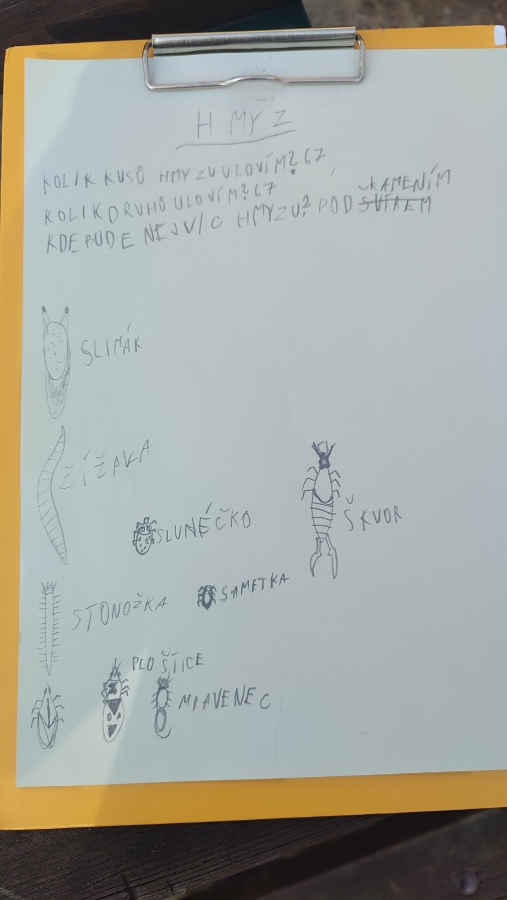 HMYZ
KOLIK KUSŮ HMYZU ULOVÍM? 67
KOLIK DRUHŮ ULOVÍM? 67
KDE BUDE NEJVÍC HMYZU? POD KAMENÍM
SLIMÁK
ŽÍŽALA
SLUNÉČKO
ŠKVOR
STONOŽKA
SAMETKA
PLOŠTICE
MRAVENEC